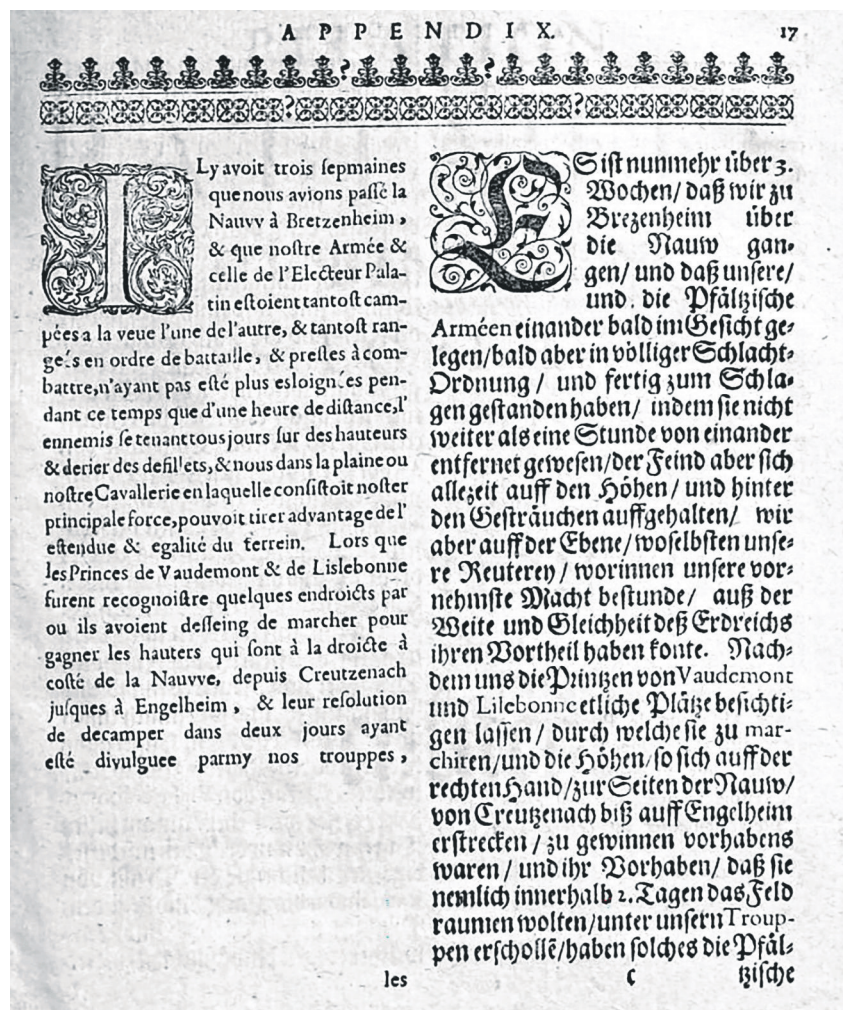 APPENDIX. 17
ILy avoit trois ſepmaines
que nous avions paſſé la
Nauvv à Bretzenheim,
& que noſtre Armée &
celle de l'Electeur Pala-
tin eſtoient tantoſt cam-
pées a la veue l'une de l'autre, & tantoſt ran-
gées en ordre de battaille, & preſtes à com-
battre, n'ayant pas eſté plus esloignées pen-
dant ce temps que d'une heure de diſtance, l'
ennemis ſe tenant tousjours ſur des hauteurs
& derier des defillets, & nous dans la plaine ou
noſtre Cavallerie en laquelle conſiſtoit noſter
principale force, pouvoit tirer advantage de l'
eſtendue & egalité du terrein. Lors que
les Princes de Vaudemont & de Lislebonne
furent recognoiſtre quelques endroicts par
ou ils avoient deſſeing de marcher pour
gagner les hauters qui ſont à la droicte à
coſté de la Nauvve, depuis Creutzenach
juſques à Engelheim, & leur reſolution
de decamper dans deux jours ayant
eſté divulguee parmy nos trouppes,
les
ES iſt nunmehr über 3.
Wochen/ daß wir zu
Brezenheim über
die Nauw gan-
gen/ und daß unſere/
und. die Pfältziſche
Arméen einander bald im Geſicht ge-
legen/ bald aber in völliger Schlacht-
Ordnung / und fertig zum Schla-
gen geſtanden haben/ indem ſie nicht
weiter als eine Stunde von einander
entfernet geweſen/ der Feind aber ſich
allezeit auff den Höhen / und hinter
den Geſträuchen auffgehalten/ wir
aber auff der Ebene/ woſelbſten unſe-
re Reuterey / worinnen unſere vor-
nehmſte Macht beſtunde/ auß der
Weite und Gleichheit deß Erdreichs
ihren Vortheil haben konte. Nach-
dem uns die Printzen von Vaudemont
und Lilebonne etliche Plätze beſichti-
gen laſſen / durch welche ſie zu mar-
chiren/ und die Höhen/ ſo ſich auff der
rechten Hand/ zur Seiten der Nauw/
von Creutzenach biß auff Engelheim
erſtrecken / zu gewinnen vorhabens
waren / und ihr Vorhaben/ daß ſie
nemlich innerhalb 2. Tagen das Feld
raumen wolten/ unter unſern Troup-
pen erſchollẽ/ haben ſolches die Pfäl-
C tziſche